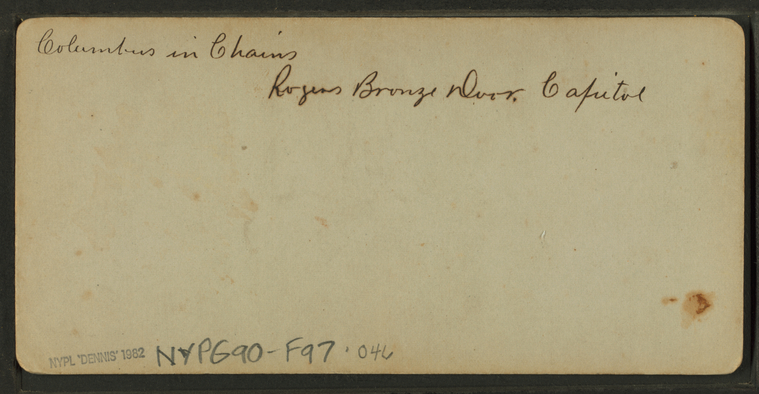 Columbus in Chains
Rogers Bronze Door. Capitol
NYPL "DENNIS" 1982 NYPG90-F97 . 046